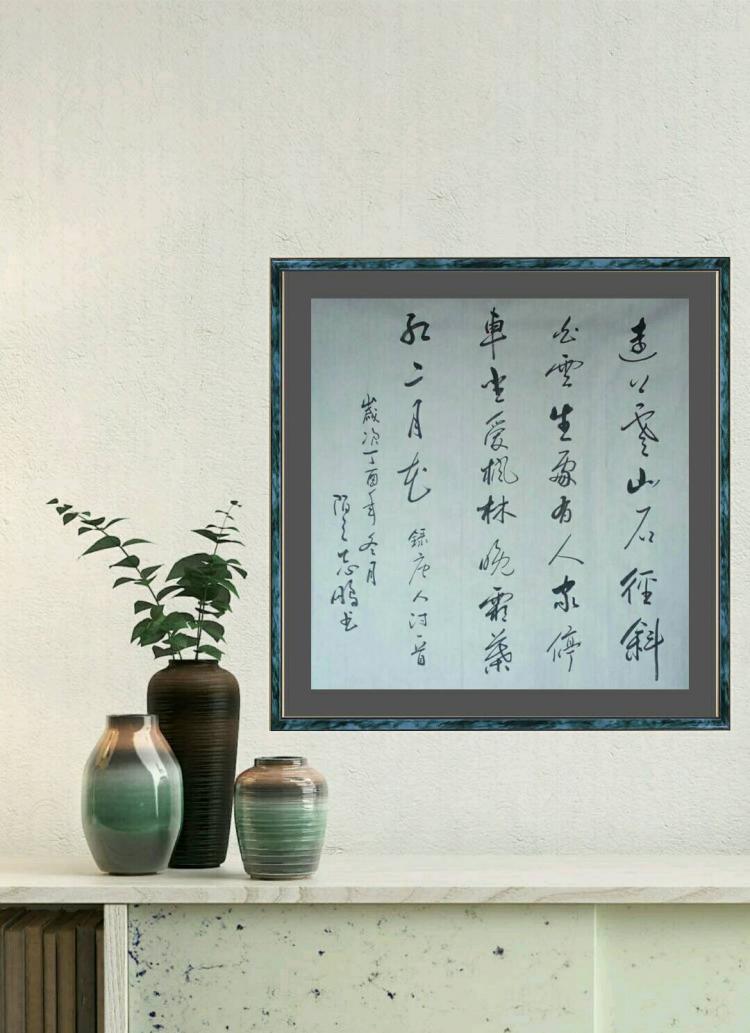 遠上寒山石徑斜
白雲生處有人家停
車坐愛楓林晚霜葉
红二月花 録唐人诗一首
歲次丁酉年冬月
志鹏书